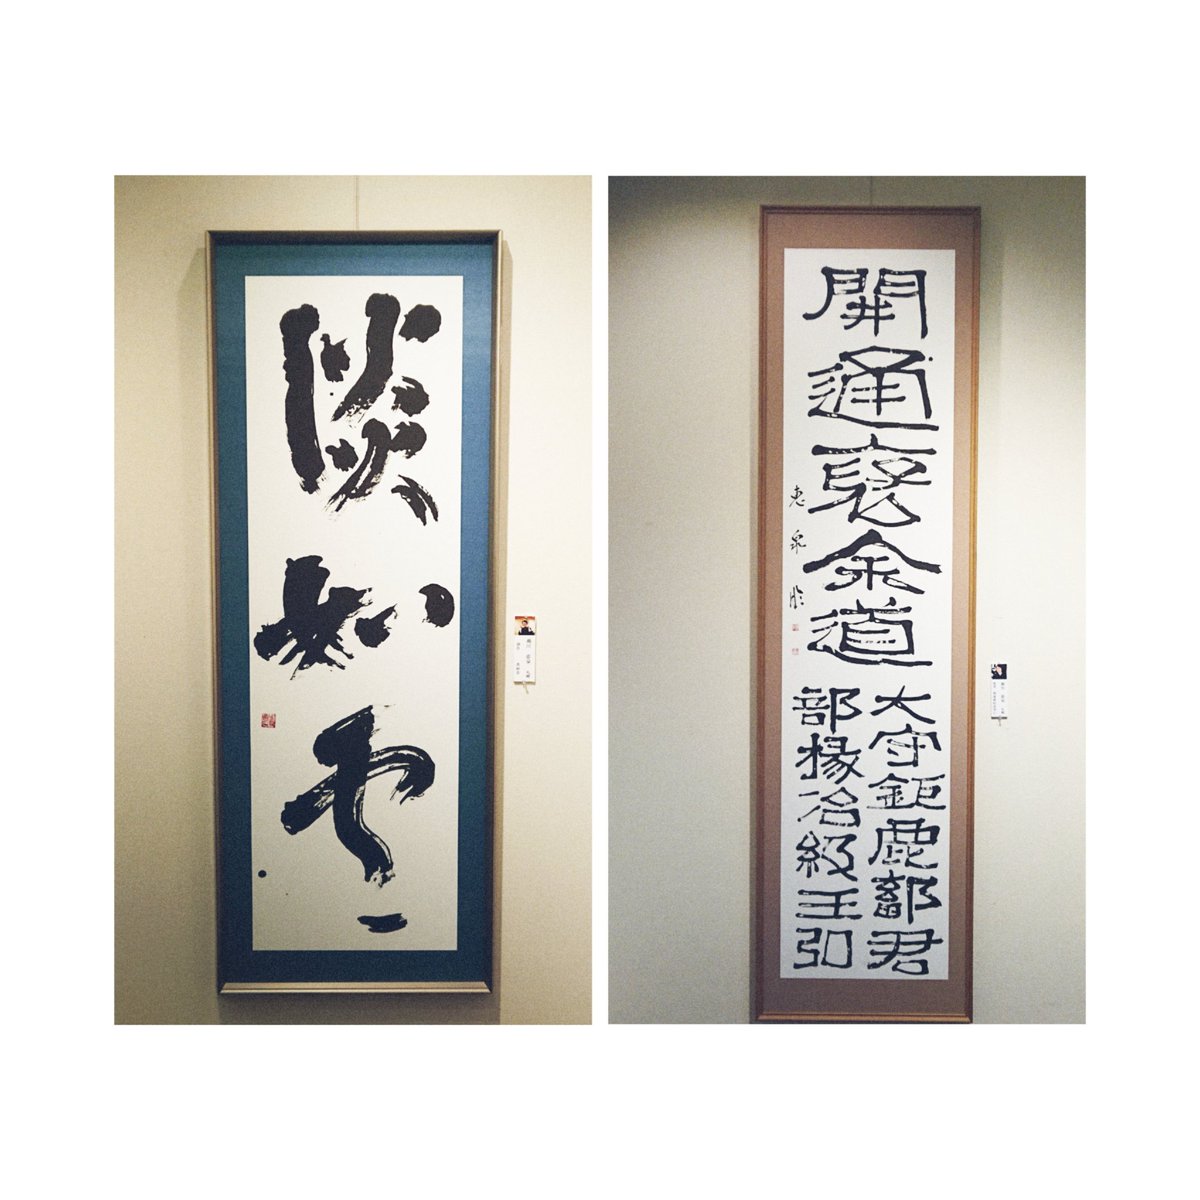 淡如雲
開通褒余道
太守鉅鹿鄐君
部掾冶級王弘
恵泉臨